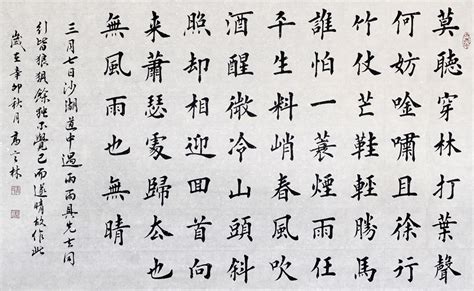 莫聽穿林打葉聲
何妨唫嘯且徐行
竹仗芒鞵輕勝馬
誰怕一蓑煙雨任
平生料峭春風吹
酒醒微冷山頭斜
照却相迎回首向
来蕭瑟處歸厺
無風雨也無晴
三月七日沙湖道中遇雨雨具先去同
引皆狼狽餘獨不覺已而遂晴故作此
歲在辛卯秋月高林